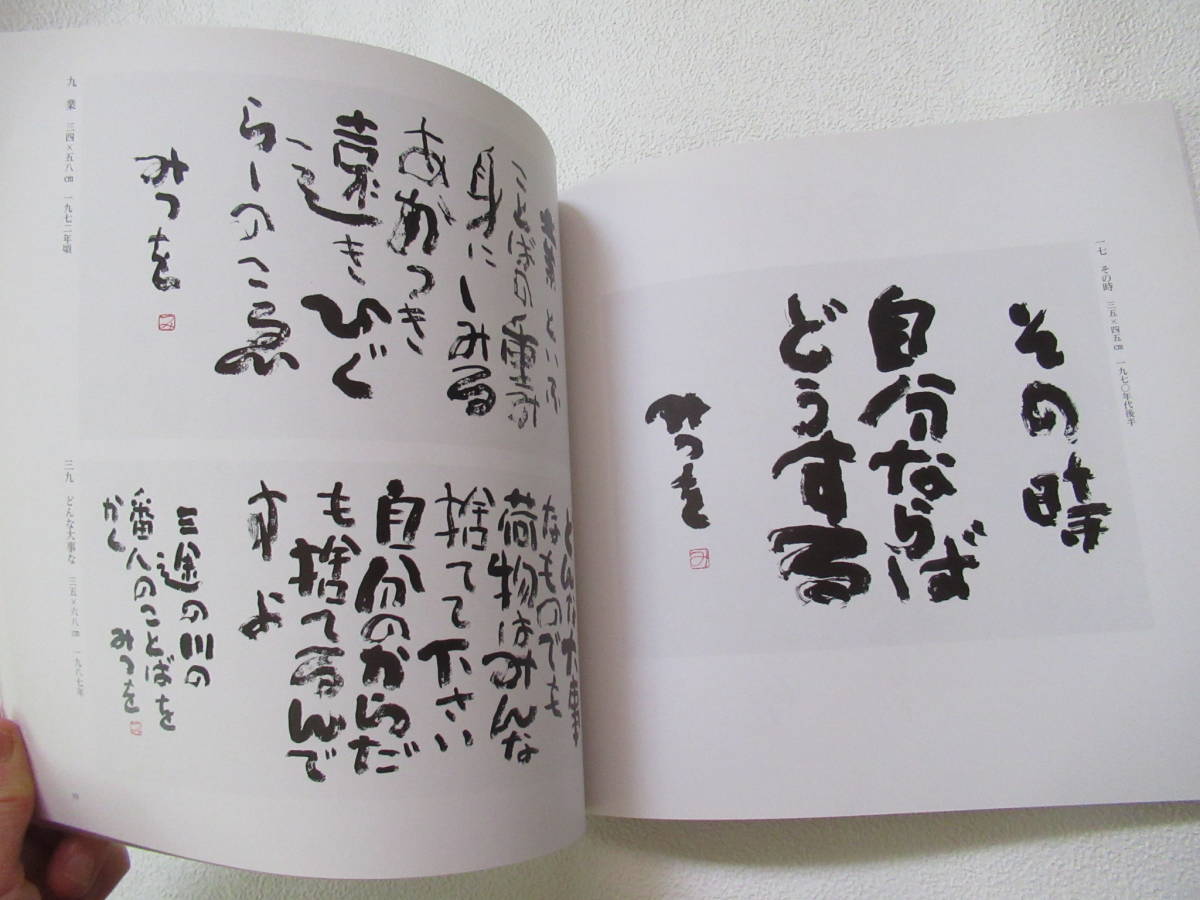 一七 その時 三五×四五㎝ 一九七〇年代後半
その時
自分ならば
どうする
みつを
み
業といふ
ことばの重さ
身にしみる
あかつき
遠きひぐ
らしのこゑ
みつを
み
九 業 三四×五八㎝ 一九七二年頃
どんな大事
なものでも
荷物はみんな
捨てて下さい
自分のからだ
も捨てるんで
すよ
三途の川の
番人のことばを
かく
みつを
三九 どんな大事な 三五×六八㎝ 一九八七年